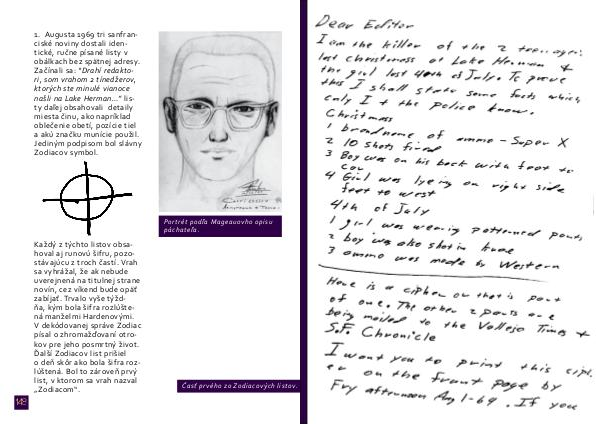 1. Augusta 1969 tri sanfran-
ciské noviny dostali iden-
tické, ručne písané listy v
obálkach bez spätnej adresy.
Začínali sa: "Drahí redakto-
ri, som vrahom 2 tínedžerov,
ktorých ste minulé vianoce
našli na Lake Herman..." lis-
ty ďalej obsahovali detaily
miesta činu, ako napríklad
oblečenie obetí, pozície tiel
a akú značku munície použil.
Jediným podpisom bol slávny
Zodiacov symbol.
Každý z týchto listov obsa-
hoval aj runovú šifru, pozo-
stávajúcu z troch častí. Vrah
sa vyhrážal, že ak nebude
uverejnená na titulnej strane
novín, cez víkend bude opäť
zabíjať. Trvalo vyše týžd-
ňa, kým bola šifra rozlúšte-
ná manželmi Hardenovými.
V dekódovanej správe Zodiac
písal o zhromažďovaní otro-
kov pre jeho posmrtný život.
Ďalší Zodiacov list prišiel
o deň skôr ako bola šifra roz-
lúštená. Bol to zároveň prvý
list, v ktorom sa vrah nazval
„Zodiacom“.
149
Portrét podľa Mageauovho opisu
páchateľa.
Časť prvého zo Zodiacových listov.
Dear Editor
I am the killer of the 2 teenagers
last christmass at Lake Herman &
the girl last 4th of July. To prove
this I shall state some facts which
only I + the police know.
Christmass
1 brand name of ammo - Super X
2 10 shots fired
3 Boy was on his back with feet to
car
4 Girl was lyeing on right side
feet to west
4th of July
1 girl was wearing patterned pants
2 boy was also shot in knee
3 ammo was made by Western
Here is a cipher or that is part
of one. The other 2 parts are
being mailed to the Vallejo Times +
S.F. Chronicle
I want you to print this cipher
on the front page by
Fry afternoon Aug 1-69. If you